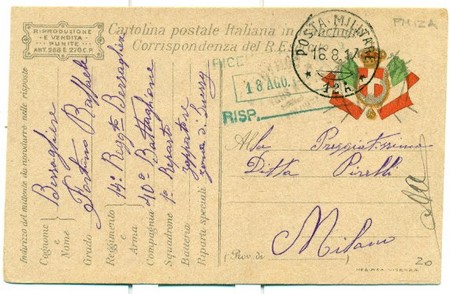 RIPRODUZIONE
E VENDITA
PUNITE
ART. 366 E 270 C.P.
Cartolina postale Italiana in
Corrispondenza del R. E
POSTA MILITARE
16.8.17
RICE
18 AGO.
RISP.
Indirizzo del mittente da riprodurre nelle risposte
Cognome e Nome
Bersagliere
Grado
Fortino Raffaele
Reggimento
14° Regg° Bersaglieri
Arma
Compagnia
40° Battaglione
Squadrone
1° Reparto
Batteria
zappatore
Riparti speciali
zona di guerra
Alla Preggiatissima
Ditta Pirelli
di
Milano
(Prov. di
20